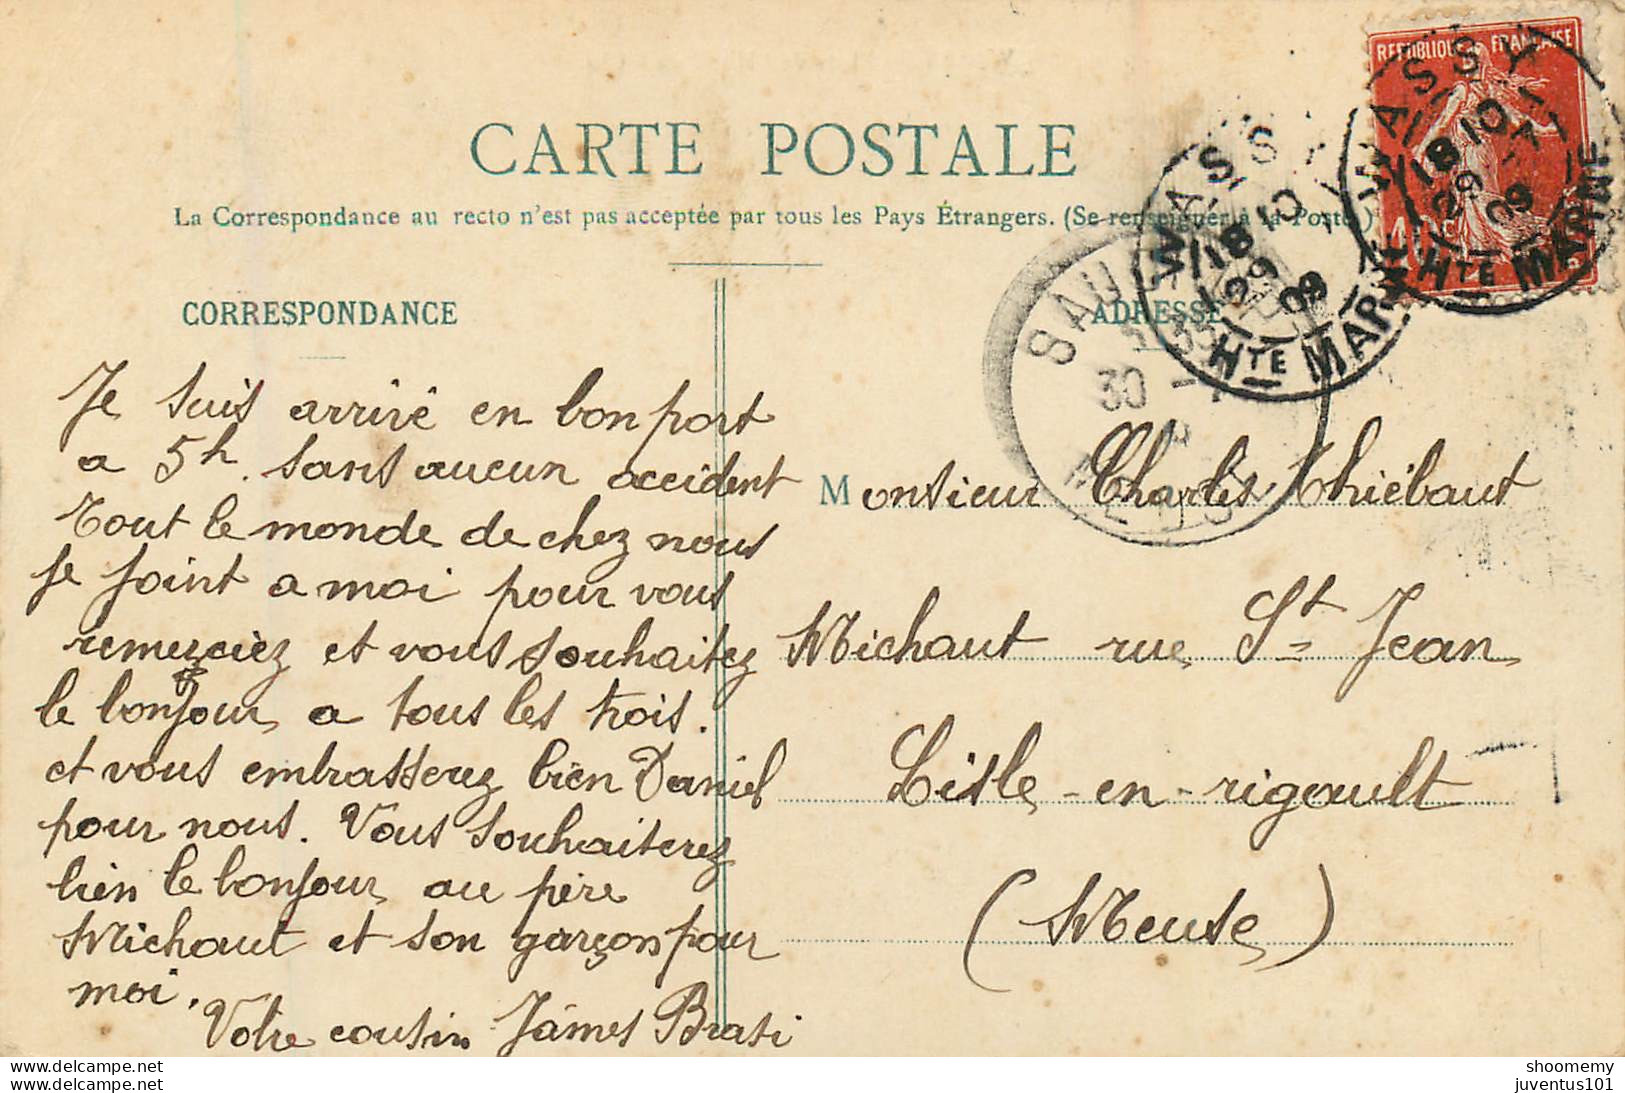 CARTE POSTALE
La Correspondance au recto n'est pas acceptée par tous les Pays Étrangers. (Se renseigner à la Poste.)
CORRESPONDANCE
Je suis arrivé en bon port
a 5h. sans aucun accident
Tout le monde de chez nous
se joint a moi pour vous
remerciez et vous souhaitez
le bonjour a tous les trois.
et vous embrasserez bien Daniel
pour nous. Vous souhaiterez
bien le bonjour au père
Michaut et son garçon pour
moi.
Votre cousin James Brasi
ADRESSE
Monsieur Charles Thiébaut
Michaut rue St Jean
Lisle-en-rigault
(Meuse)
REPUBLIQUE FRANÇAISE
10c
WASSY
18 10
29 -7
09
HTE MARNE
WASSY
18 10
29
09
HTE MARNE
SAU
30 -
MEUSE
delcampe.net
delcampe.net
shoomemy
juventus101